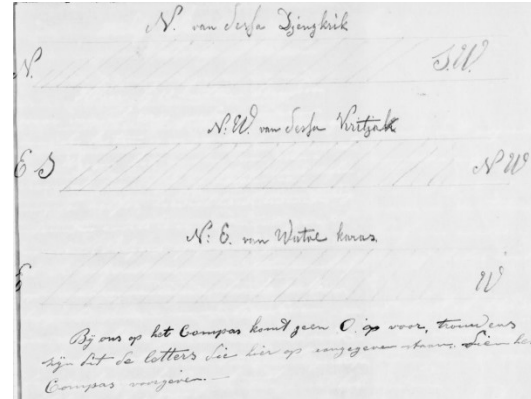 N. van dessa Djengkrik
N. S.W.
N: W. van dessa Kritjak
E S N W
N: E. van Watoe karas.
E W
Bÿ ons op het Compas komt geen O. op voor, trouwens
zÿn dit de letters die hier op aangegeven staan. die het
Compas voorgeven.—